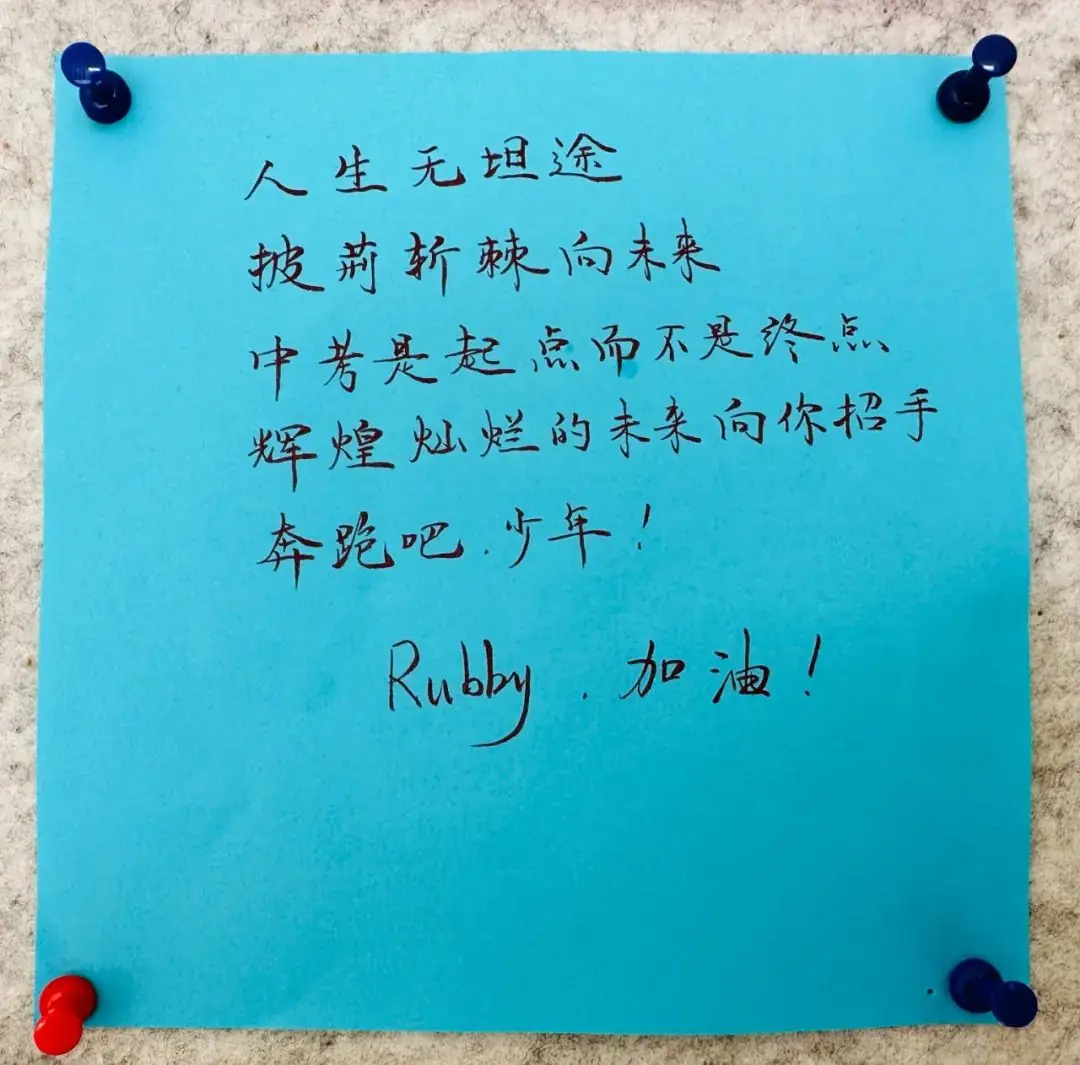 人生无坦途
披荆斩棘向未来
中考是起点而不是终点
辉煌灿烂的未来向你招手
奔跑吧.少年！
Rubby.加油！